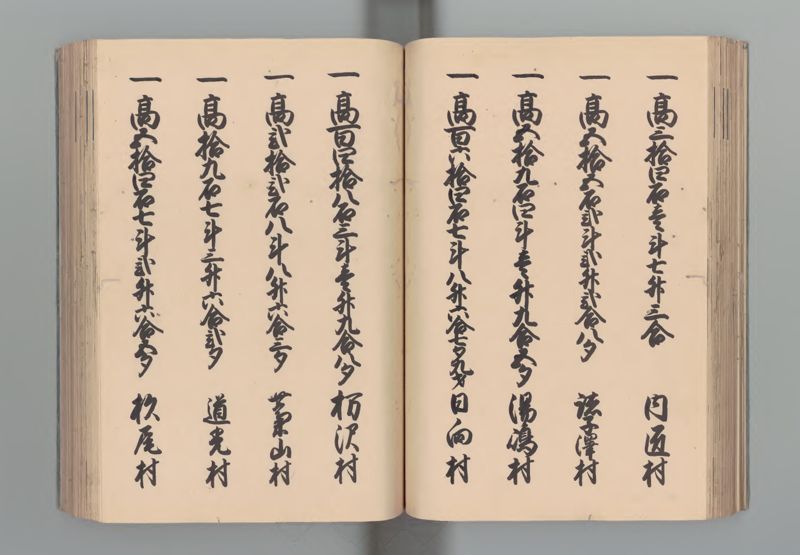 一 高三拾四石壱斗七升三合 内匠村
一 高五拾五石弐斗弐升弐合八夕 譲澤村
一 高五拾九石四斗壱升九合五夕 湯嶋村
一 高百六拾四石七斗八升六合七夕九才 日向村
一 高百四拾八石三斗壱升九合八夕 栃沢村
一 高弐拾弐石八斗八升六合三夕 山村
一 高拾九石七斗三升六合弐夕 道光村
一 高五拾四石七斗弐升六合五夕 杉尾村